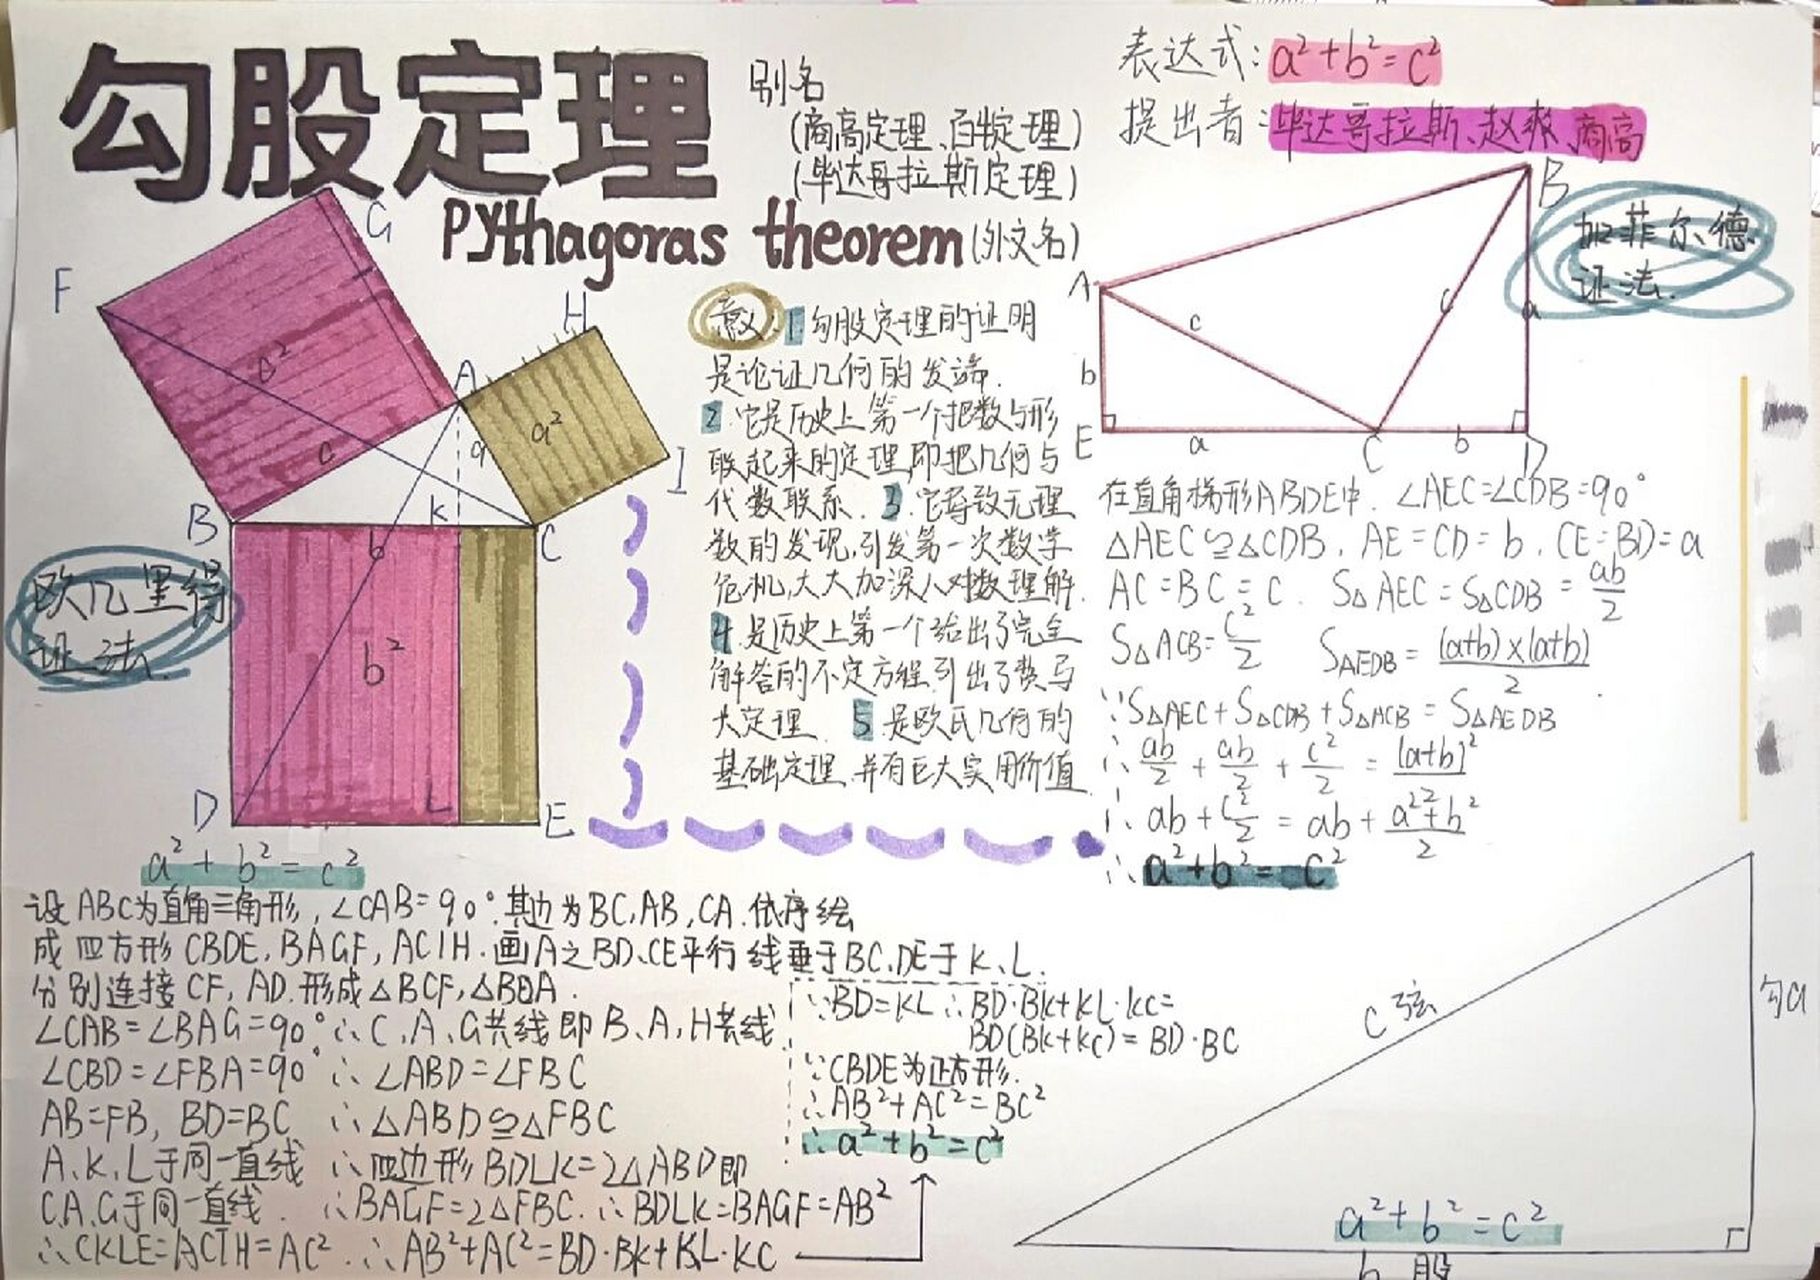 勾股定理
别名
(商高定理、百牛定理)
(毕达哥拉斯定理)
Pythagoras theorem (外文名)
表达式: a²+b²=c²
提出者: 毕达哥拉斯、赵爽、商高
F
G
H
A
I
B
C
K
D
L
E
c²
a²
b²
c
a
b
欧几里得
证法
意义: 1 勾股定理的证明
是论证几何的发端.
2. 它是历史上第一个把数与形
联起来的定理,即把几何与
代数联系. 3. 它导致无理
数的发现,引发第一次数学
危机,大大加深人对数理解.
4. 是历史上第一个给出了完全
解答的不定方程,引出了费马
大定理. 5. 是欧氏几何的
基础定理,并有巨大实用价值
加菲尔德
证法.
A
B
E
C
D
c
c
a
b
a
b
在直角梯形ABDE中. ∠AEC=∠CDB=90°
△AEC≌△CDB. AE=CD=b. CE=BD=a
AC=BC=c. S△AEC=S△CDB=ab/2
S△ACB=c²/2 SAEDB=(a+b)×(a+b)/2
∵S△AEC+S△CDB+S△ACB=S△AEDB
∴ab/2+ab/2+c²/2=(a+b)²/2
∴ab+c²/2=ab+a²+b²/2
∴a²+b²=c²
a²+b²=c²
设ABC为直角三角形,∠CAB=90°.其边为BC,AB,CA.依序绘
成四方形CBDE,BAGF,ACIH.画A之BD、CE平行线垂于BC、DE于K、L.
分别连接CF,AD.形成△BCF,△BDA.
∠CAB=∠BAG=90°∴C、A、G共线即B、A、H共线
∠CBD=∠FBA=90°∴∠ABD=∠FBC
AB=FB, BD=BC ∴△ABD≌△FBC
A、K、L于同一直线 ∴四边形BDLK=2△ABD即
C、A、G于同一直线. ∴BAGF=2△FBC.∴BDLK=BAGF=AB²
∴CKLE=ACIH=AC².∴AB²+AC²=BD·BK+KL·KC
∵BD=KL∴BD·BK+KL·KC=
BD(BK+KC)=BD·BC
∵CBDE为正方形.
∴AB²+AC²=BC²
∴a²+b²=c²
c 弦
勾a
a²+b²=c²
b 股